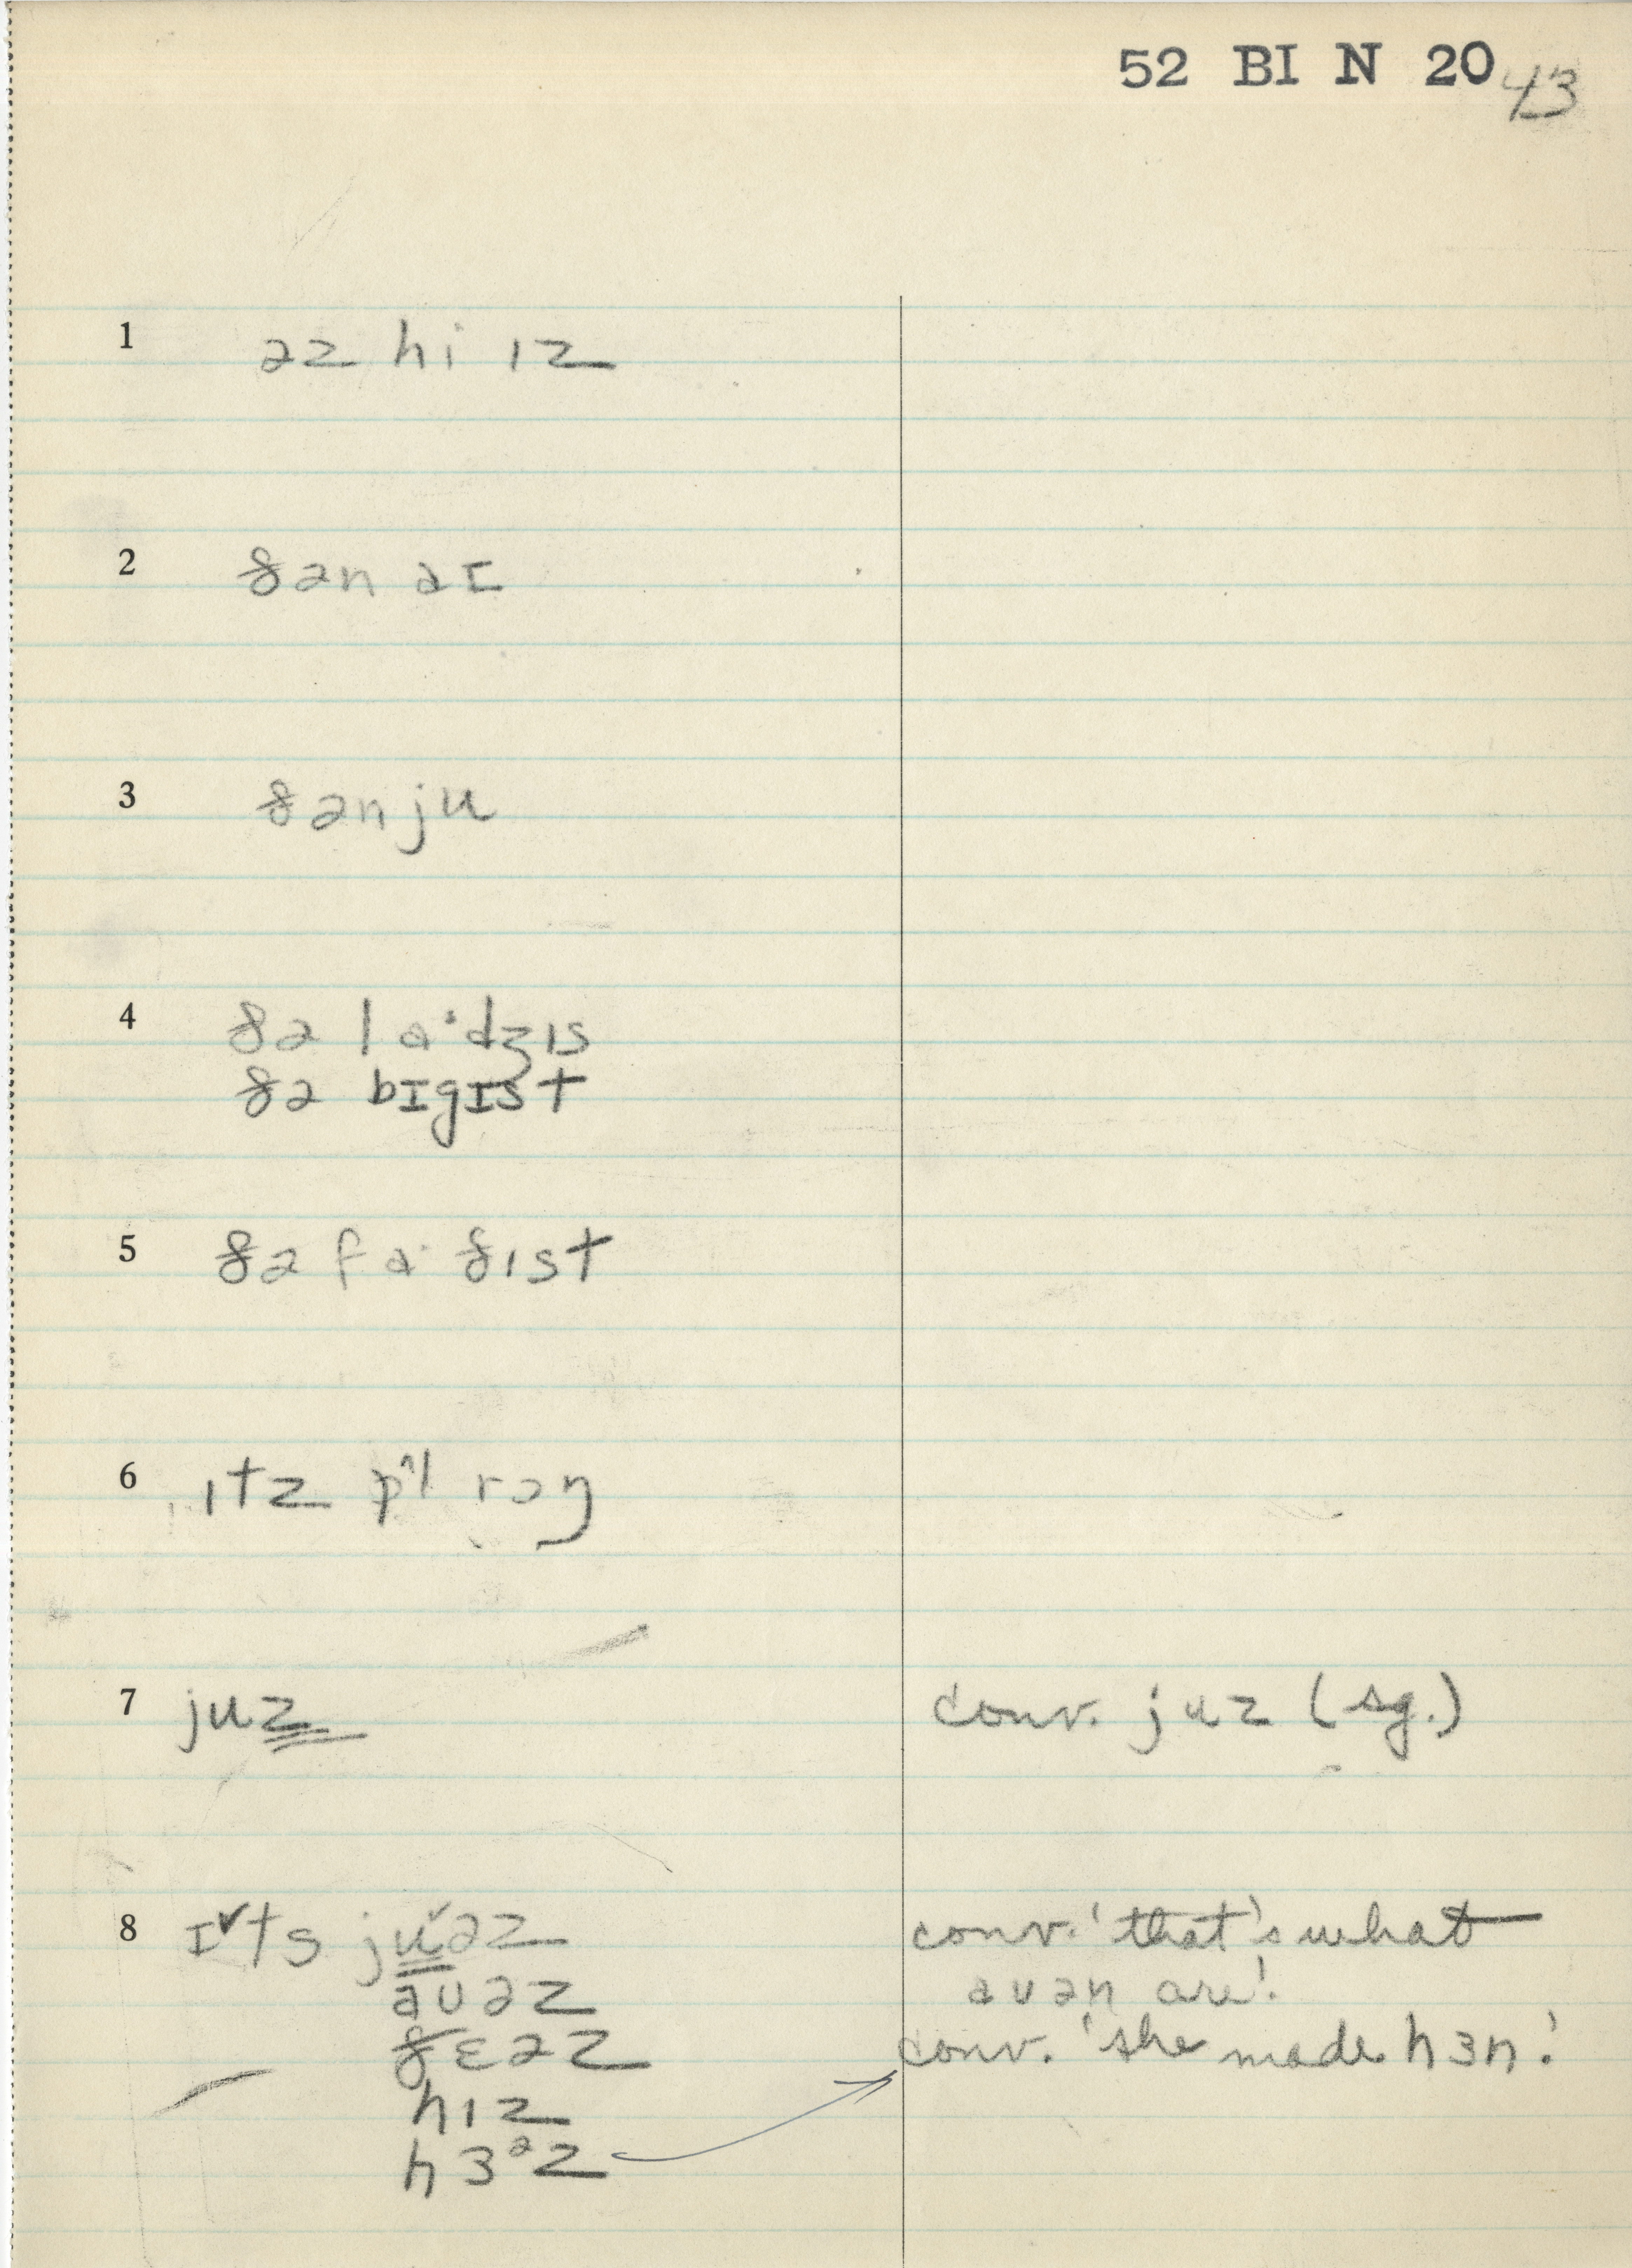 52 BI N 20 43
1 əz hi ɪz
2 ðən aɪ
3 ðən ju
4 ðə laˑdʒɪs
ðə bɪgɪst
5 ðə faˑðɪst
6 ɪtz pḷ rɔŋ
7 juz conv. juz (sg.)
8 ɪts juəz conv. 'that's what
auəz auən are'.
ðɛəz conv. 'she made hɜn'.
hɪz
hɜᵊz